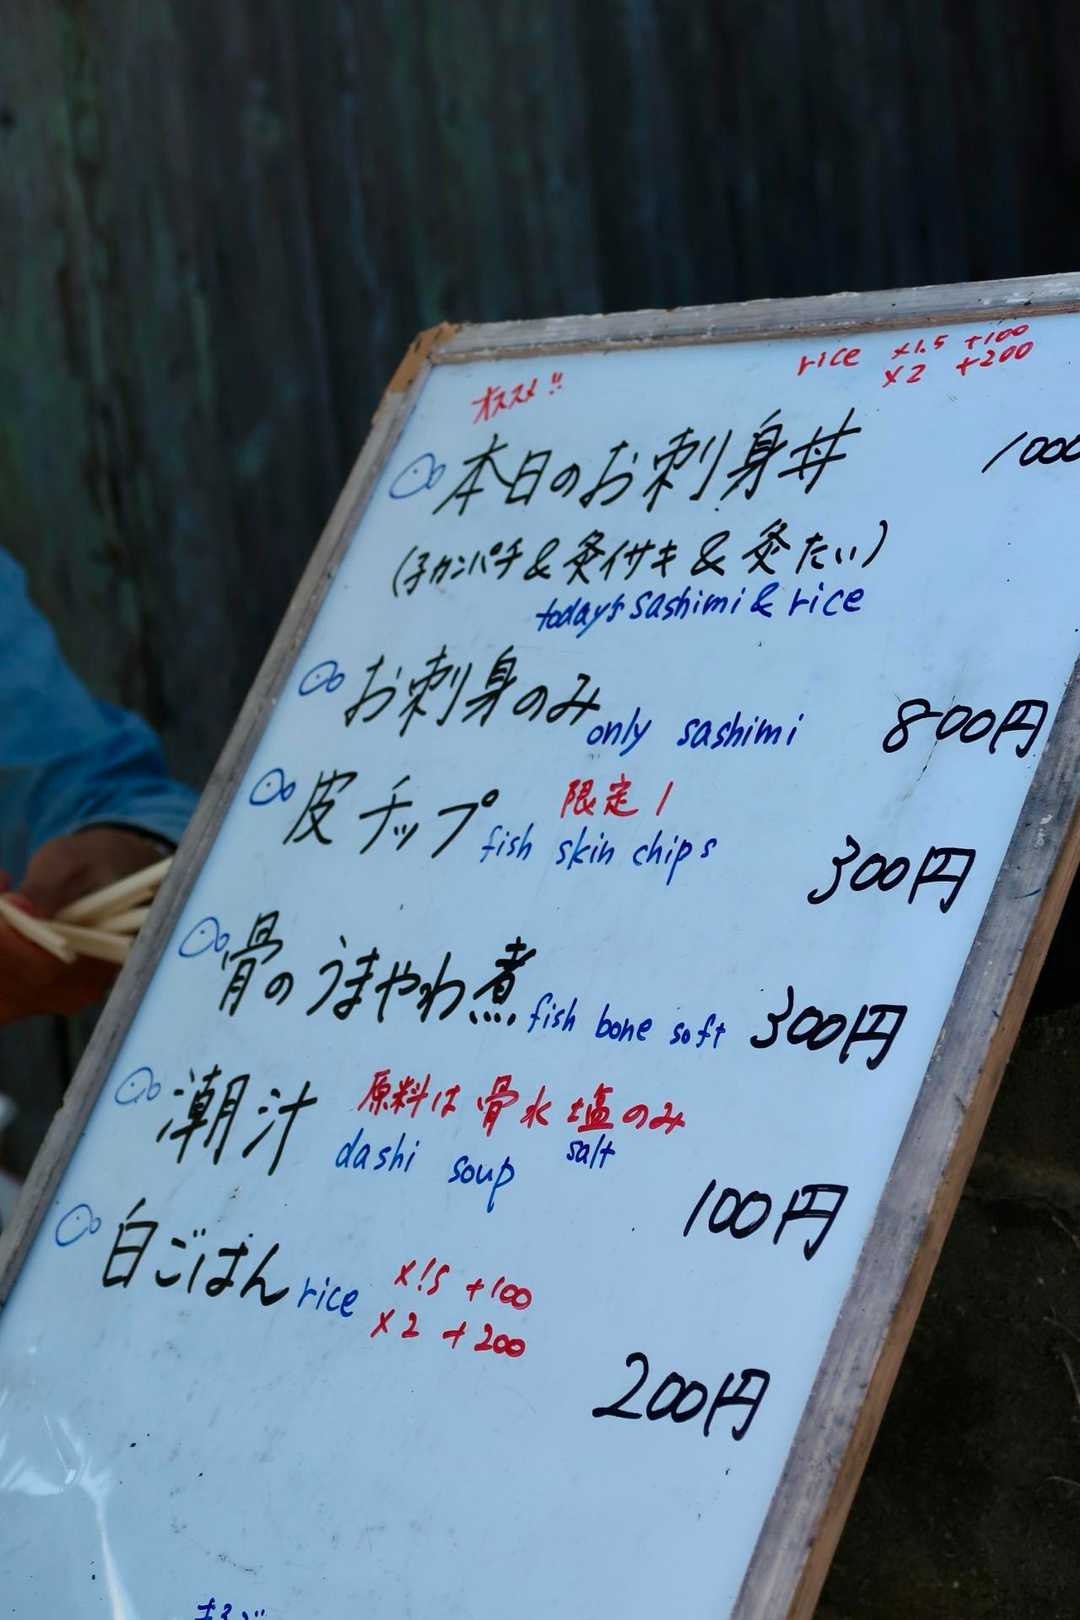 オススメ!!
rice ×1.5 +100
×2 +200
本日のお刺身丼 1000
(子カンパチ&炙イサキ&炙たい)
today's sashimi & rice
お刺身のみ only sashimi 800円
皮チップ 限定1
fish skin chips 300円
骨のうまやわ煮 fish bone soft 300円
潮汁 原料は骨水塩のみ
dashi soup salt
100円
白ごはん rice ×1.5 +100
×2 +200
200円